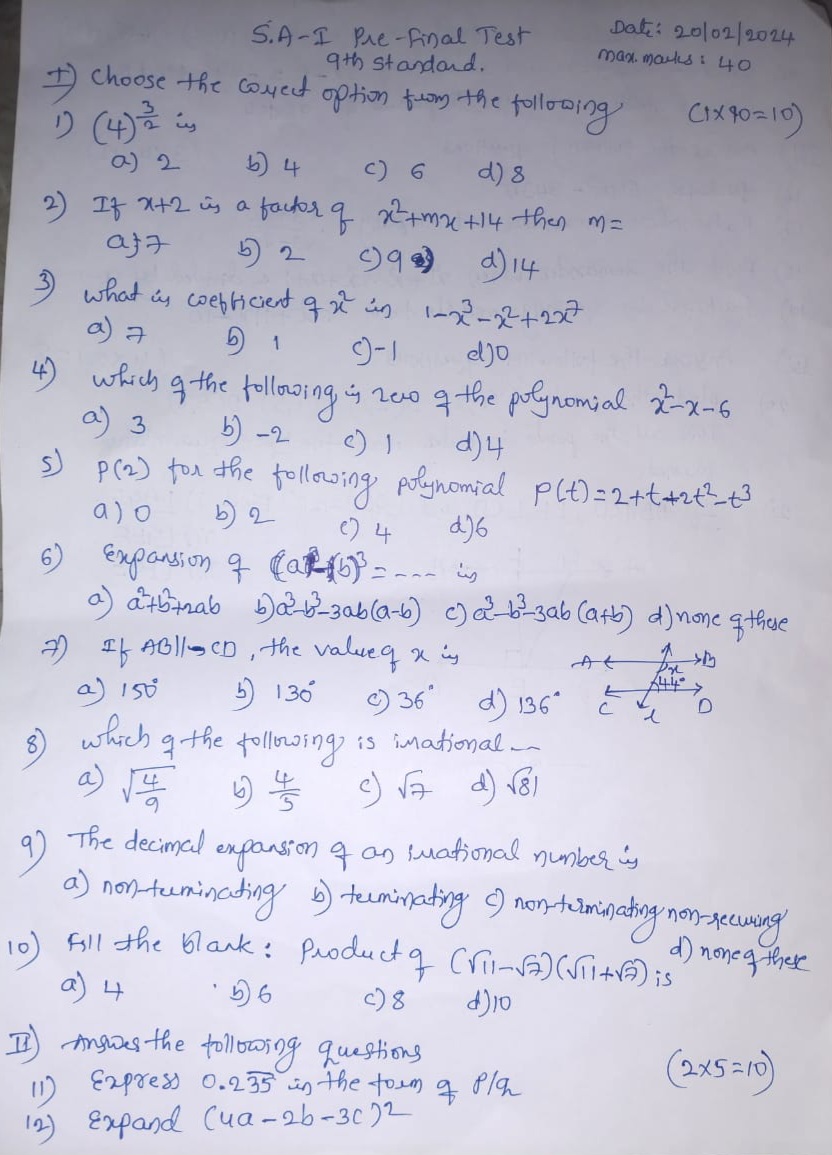 S.A-I Pre-final Test
Date: 20/02/2024
9th standard.
max. marks: 40
I) Choose the correct option from the following (1x10=10)
1) (4)^3/2 is
a) 2 b) 4 c) 6 d) 8
2) If x+2 is a factor of x²+mx+14 then m=
a) 7 b) 2 c) 9 d) 14
3) what is coefficient of x² in 1-x³-x²+2x⁷
a) 7 b) 1 c) -1 d) 0
4) which of the following is zero of the polynomial x²-x-6
a) 3 b) -2 c) 1 d) 4
5) P(2) for the following polynomial P(t)=2+t+2t²-t³
a) 0 b) 2 c) 4 d) 6
6) Expansion of (a-b)³=---- is
a) a²+b²+2ab b) a³-b³-3ab(a-b) c) a³-b³-3ab(a+b) d) none of these
7) If AB||CD, the value of x is
A B
x
44°
C l D
a) 150° b) 130° c) 36° d) 136°
8) which of the following is irrational--
a) √4/9 b) 4/5 c) √7 d) √81
9) The decimal expansion of an irrational number is
a) non-terminating b) terminating c) non-terminating non-recurring
d) none of these
10) Fill the blank: Product of (√11-√7)(√11+√7) is
a) 4 b) 6 c) 8 d) 10
II) Answer the following questions (2x5=10)
11) Express 0.23̅5̅ in the form of P/q
12) Expand (4a-2b-3c)²